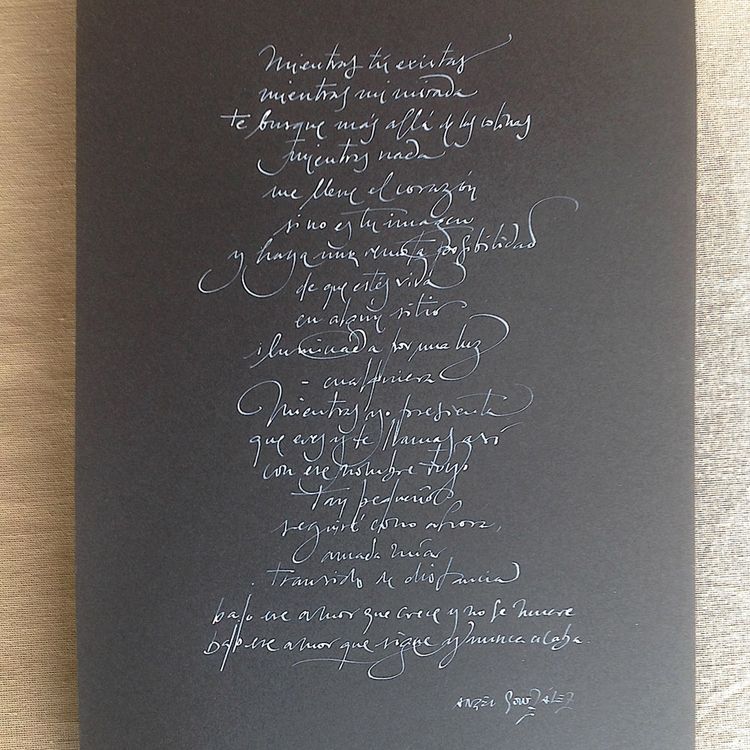 Mientras tú existas
mientras mi mirada
te busque más allá de las colinas
mientras nada
me llene el corazón
si no es tu imagen
y haya una remota posibilidad
de que estés viva
en algún sitio
iluminada por una luz
- cualquiera
Mientras yo presienta
que eres y te llamas así
con ese nombre tuyo
tan pequeño
seguiré como ahora,
amada mía
transido de distancia
bajo ese amor que crece y no se muere
bajo ese amor que sigue y nunca acaba.
ANGEL GONZÁLEZ